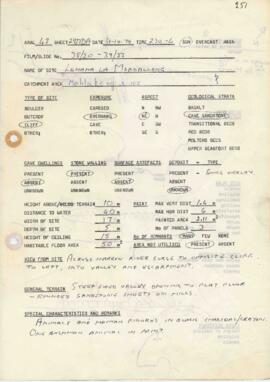 251
ARAL 48 SHEET 2927DA DATE TIME SUN OVERCAST AREA
FILM/SLIDE NO. 38/30 - 39/33
NAME OF SITE LEHAHA LA
CATCHMENT AREA
TYPE OF SITE EXPOSURE ASPECT GEOLOGICAL STRATA
BOULDER EXPOSED N NW BASALT
OUTCROP OVERHANG NE W CAVE SANDSTONE
CLIFF CAVE E SW TRANSITIONAL BEDS
OTHER: OTHER: SE S RED BEDS
MOLTENO BEDS
UPPER BEAUFORT BEDS
CAVE DWELLINGS STONE WALLING SURFACE ARTEFACTS DEPOSIT - TYPE
PRESENT PRESENT PRESENT PRESENT
ABSENT ABSENT ABSENT ABSENT
UNKNOWN UNKNOWN UNKNOWN UNKNOWN
HEIGHT ABOVE/BELOW TERRAIN 10 m PAINT MAX VERT DIST 1.6 m
DISTANCE TO WATER 40 m MAX HOR DIST 6 m
WIDTH OF SITE 17 m PAINTED AREA m²
DEPTH OF SITE 5 m No OF PANELS 3
HEIGHT OF CEILING 15 m No OF REMNANTS MANY FEW NONE
HABITABLE FLOOR AREA 50 m² AREA NOT UTILISED PRESENT ABSENT
VIEW FROM SITE ACROSS NARROW RIVER GORGE TO OPPOSITE CLIFF.
TO LEFT, INTO VALLEY AND ESCARPMENT.
GENERAL TERRAIN STEEP SIDED VALLEY OPENING TO FLAT FLOOR -
ROUNDED SANDSTONE SHEETS ON HILLS.
SPECIAL CHARACTERISTICS AND REMARKS
ANIMALS AND HUMAN FIGURES IN BLACK CHARCOAL/CRAYON.
ONE BUSHMAN ANIMAL IN PAINT.